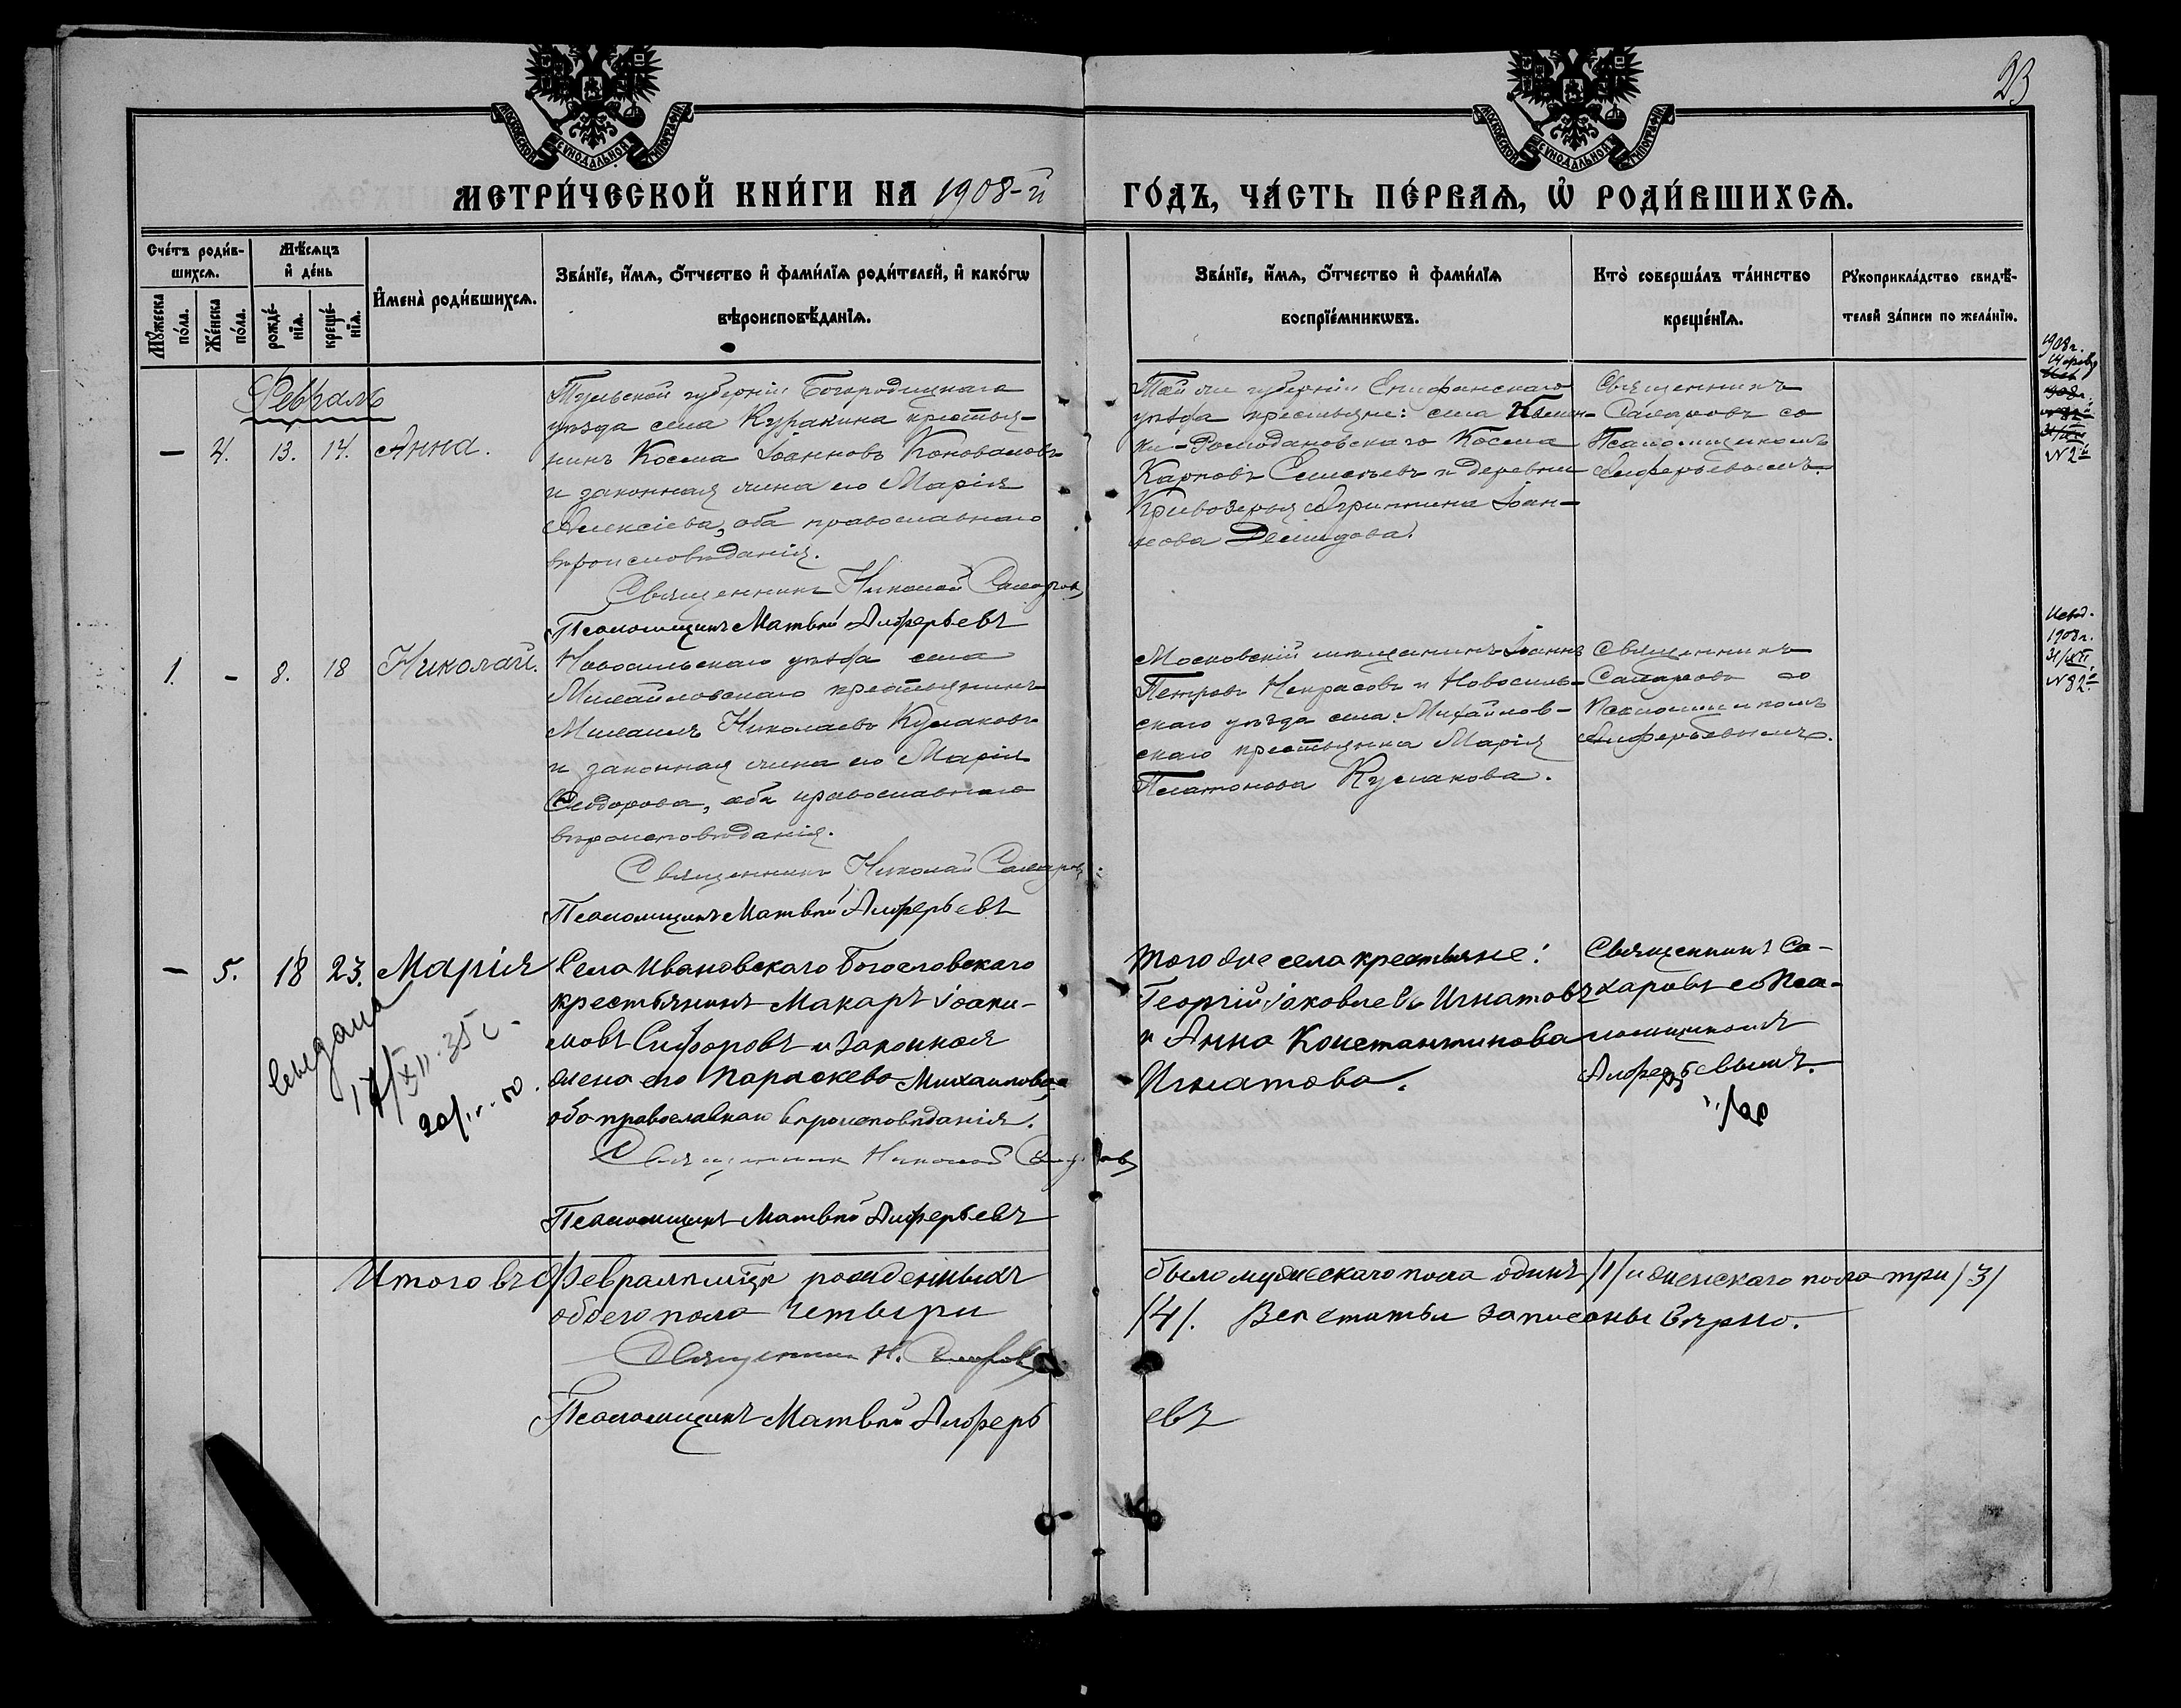 23
МОСКОВСКОЙ СѴНОДАЛЬНОЙ ТИПОГРАФІИ
МОСКОВСКОЙ СѴНОДАЛЬНОЙ ТИПОГРАФІИ
МЕТРИ́ЧЕСКОЙ КНИ́ГИ НА 1908-й ГО́ДЪ, ЧА́СТЬ ПЕ́РВАѦ, Ѽ РОДИ́ВШИХСѦ.
Сче́тъ роди́в-
шихсѧ.
Мꙋ́жеска
по́ла.
Же́нска
по́ла.
Мѣ́сѧцъ
и҆ де́нь
рожде́-
нїѧ.
креще́-
нїѧ.
И҆мена̀ роди́вшихсѧ.
Зва́нїе, и҆́мѧ, ѻ҆́тчество и҆ фами́лїѧ роди́телей, и҆ како́гѡ
вѣроисповѣ́данїѧ.
Зва́нїе, и҆́мѧ, ѻ҆́тчество и҆ фами́лїѧ
воспрїе́мникѡвъ.
Кто̀ соверша́лъ та́инство
креще́нїѧ.
Рꙋкоприкла́дство свидѣ́-
телей за́писи по жела́нїю.
Февраль
— 4. 13. 14. Анна.
Тульской губерніи Богородицкаго
уѣзда села Куракина крестья-
нинъ Косма Іоанновъ Коноваловъ
и законная жена его Марія
Алексіева, оба православнаго
вѣроисповѣданія.
Священникъ Николай Сахаровъ
Псаломщикъ Матвѣй Алферьевъ
Той же губерніи Епифанскаго
уѣзда крестьяне: села Камен-
ки-Ромодановскаго Косма
Карповъ Елисеевъ и деревни
Кривозерья Агриппина Іоан-
нова Демидова.
Священникъ
Сахаровъ со
Псаломщикомъ
Алферьевымъ.
1908г.
№2
1. - 8. 18 Николай.
Новосильскаго уѣзда села
Михайловскаго крестьянинъ
Михаилъ Николаевъ Кулаковъ
и законная жена его Марія
Ѳеодорова, оба православнаго
вѣроисповѣданія.
Священникъ Николай Сахаровъ
Псаломщикъ Матвѣй Алферьевъ
Московскій мѣщанинъ Іоаннъ
Петровъ Некрасовъ и Новосиль-
скаго уѣзда села Михайлов-
скаго крестьянка Марія
Платонова Кулакова.
Священникъ
Сахаровъ со
Псаломщикомъ
Алферьевымъ.
1908г.
31/XII
№82
— 5. 18 23. Марія
Села Ивановскаго Богословскаго
крестьянинъ Макаръ Іоаки-
мовъ Сифоровъ и законная
жена его Параскева Михаилова,
оба православнаго вѣроисповѣданія.
Священникъ Николай Сахаровъ
Псаломщикъ Матвѣй Алферьевъ
того же села крестьяне:
Георгій Іаковлевъ Игнатовъ
и Анна Константинова
Игнатова.
Священникъ Са-
харовъ со Пса-
ломщикомъ
Алферьевымъ.
17/XII 35 г.
Итого въ Февралѣ мѣсяцѣ рожденныхъ было мужескаго пола одинъ /1/ и женскаго пола три /3/
обоего пола четыри /4/. Всѣ статьи записаны вѣрно.
Священникъ Н. Сахаровъ
Псаломщикъ Матвѣй Алферьевъ